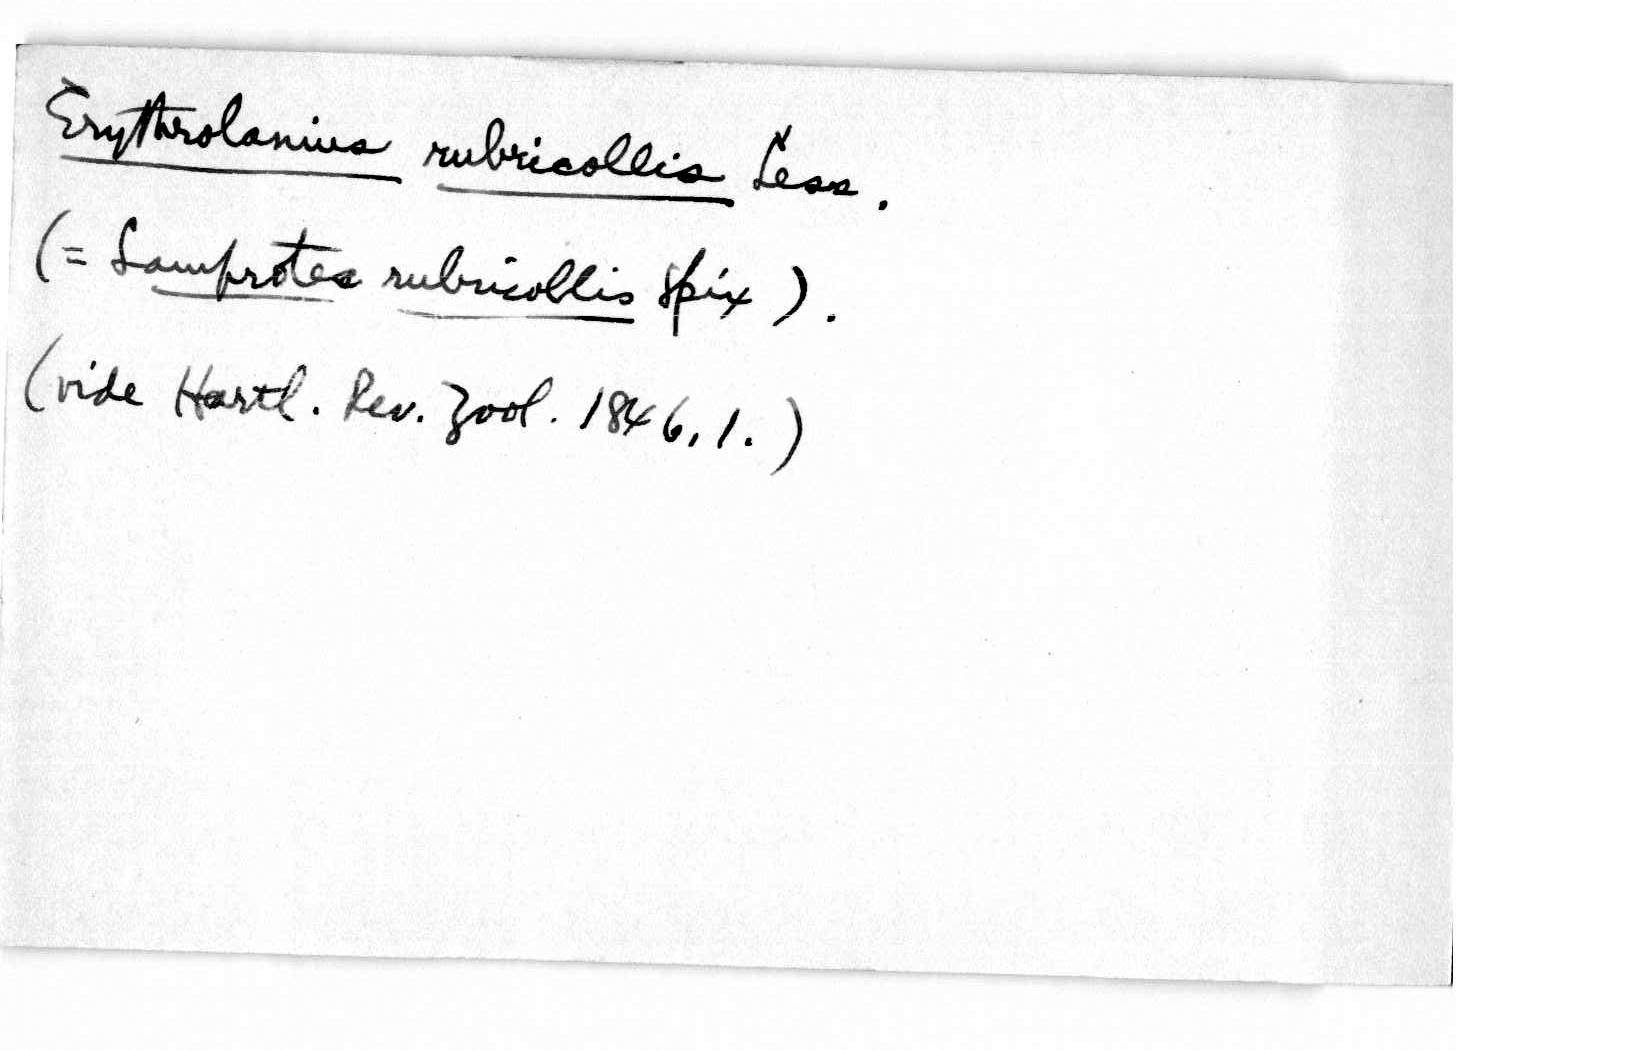 Erythrolanius rubricollis Less.
(= Lamprotes rubricollis Spix).
(vide Hartl. Rev. Zool. 1846, 1.)